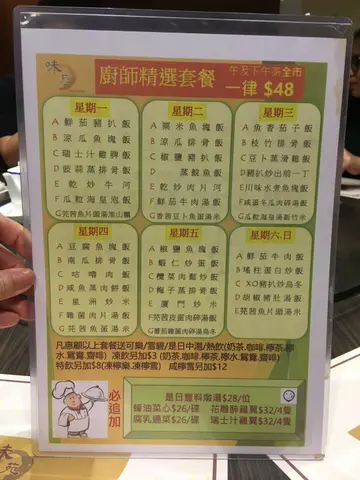 味苑
廚師精選套餐
午及下午茶全市
一律 $48
星期一
A 鮮茄豬扒飯
B 涼瓜魚塊飯
C 瑞士汁雞脾飯
D 豉蒜蒸排骨飯
E 乾炒牛河
F 瓜粒海皇泡飯
G 芫茜魚片面湯
星期二
A 粟米魚塊飯
B 涼瓜排骨飯
C 椒鹽豬扒飯
D 蒸鯇魚飯
E 乾炒肉片河
F 鮮茄牛肉湯飯
G 香茜豆卜魚面湯米
星期三
A 魚香茄子飯
B 枝竹排骨飯
C 豆卜蒸滑雞飯
D 豬扒炒出前一丁
E 川味水煮魚塊飯
F 咸蛋冬瓜肉碎湯飯
G 瓜粒海皇湯新竹米
星期四
A 豆腐魚塊飯
B 南瓜排骨飯
C 咕嚕肉飯
D 咸魚蒸肉餅飯
E 星洲炒米
F 雜菌肉片湯飯
G 芫茜魚蛋面湯米
星期五
A 椒鹽魚塊飯
B 蝦仁炒蛋飯
C 欖菜肉鬆炒飯
D 梅子蒸排骨飯
E 廈門炒米
F 芫茜魚面肉碎湯飯
G 番茄雜菌肉碎湯烏冬
星期六.日
A 鮮茄牛肉飯
B 瑤柱蛋白炒飯
C XO豬扒炒烏冬
D 胡椒豬肚湯飯
E 芫茜魚片面湯米
凡惠顧以上套餐送可樂/雪碧/是日中湯/熱飲(奶茶.咖啡.檸茶.檸
水.鴛鴦.齋啡) 凍飲另加$3 (奶茶.咖啡.檸茶.檸水.鴛鴦.齋啡)
特飲另加$8(凍檸樂.凍檸雪) 咸檸雪另加$12
必追加
是日豐料燉湯$28/位
蠔油菜心$26/碟 花雕醉雞翼$32/4隻
腐乳通菜$26/碟 瑞士汁雞翼$32/4隻